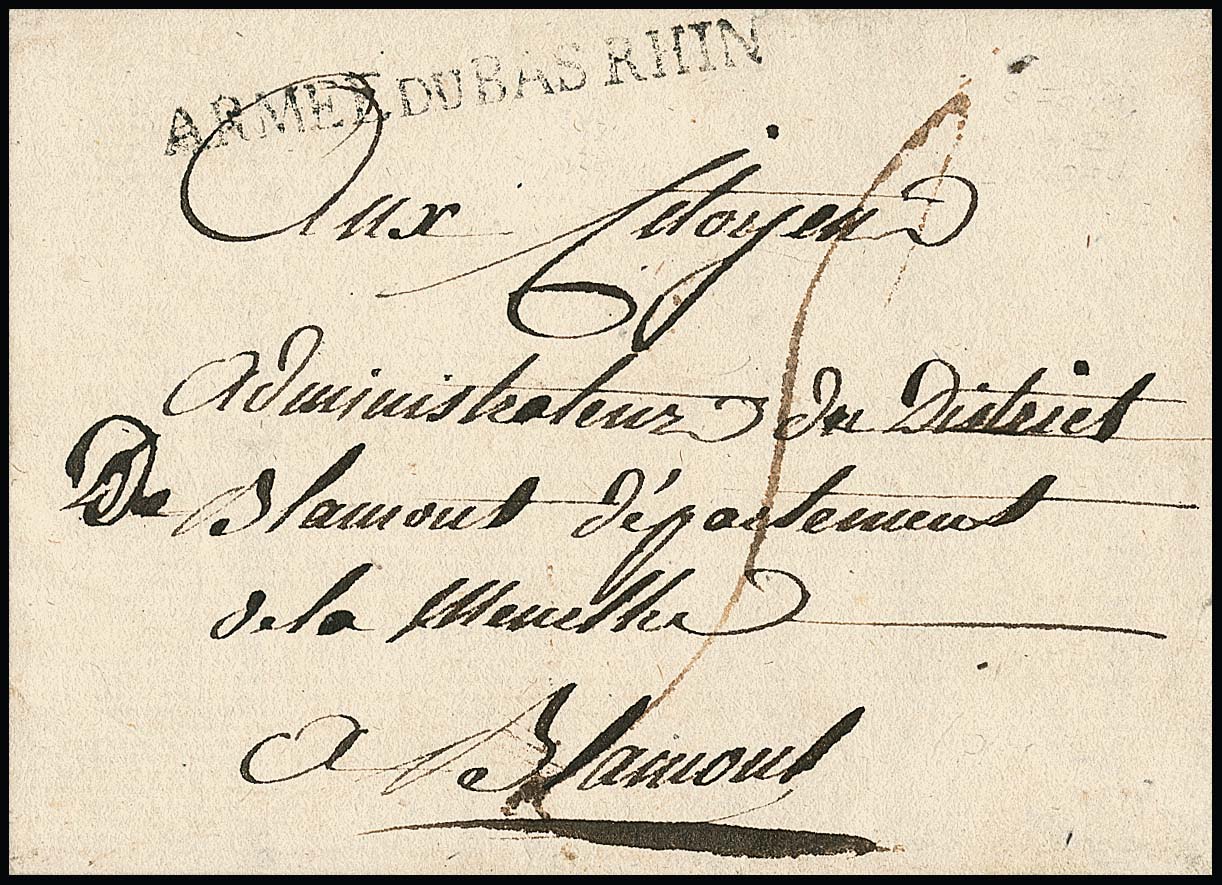 ARMEE DU BAS RHIN
Aux Citoyens
Administrateurs du District
De Blamont département
de la Meurthe
A Blamont